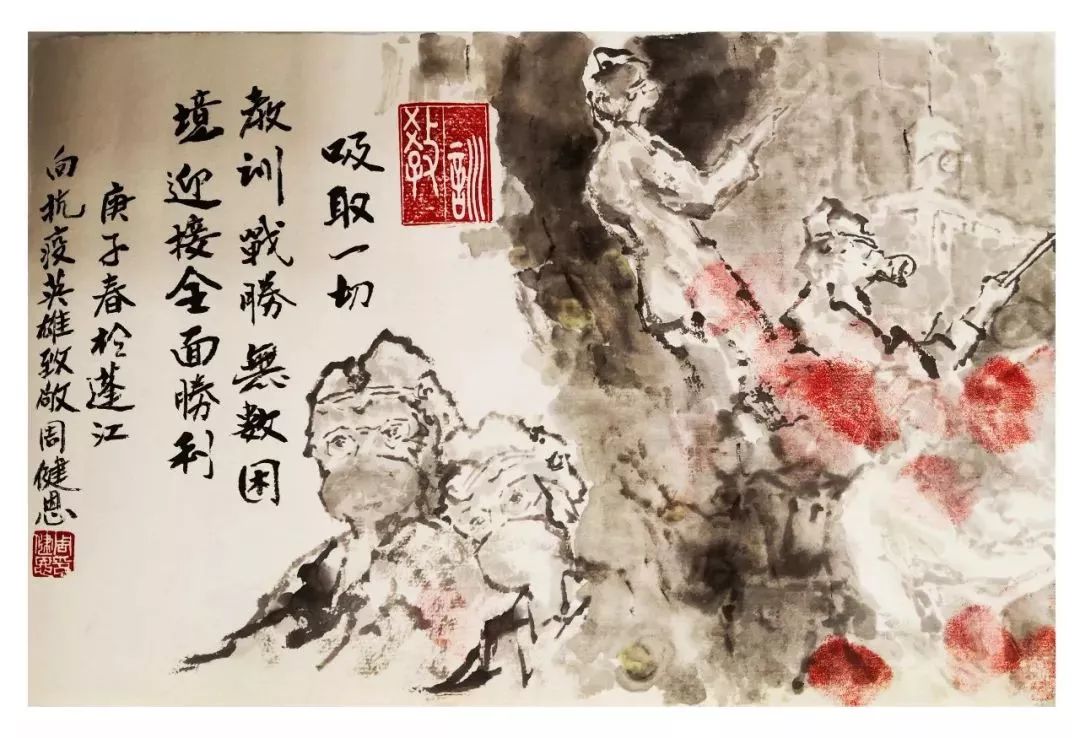 教訓
吸取一切
教训戰勝無数困
境迎接全面勝利
庚子春於蓬江
向抗疫英雄致敬周健恩